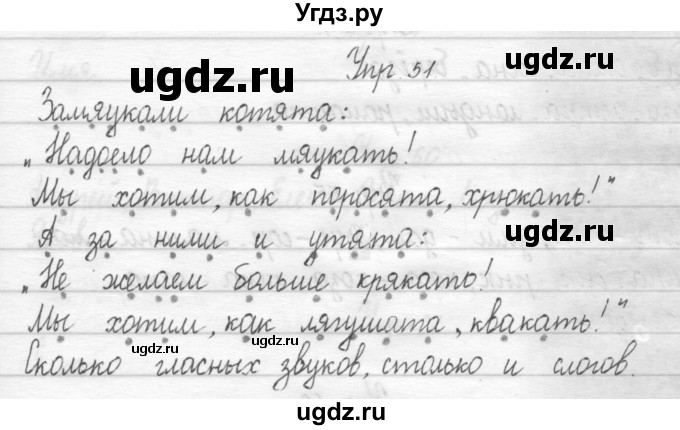 Угдз.ру
ugdz.ru
ugdz.ru
Упр 51
Замяукали котята:
ugdz.ru
„Надоело нам мяукать!
Мы хотим, как поросята, хрюкать!“
А за ними и утята:
ugdz.ru
ugdz.ru
„Не желаем больше крякать!
Мы хотим, как лягушата, квакать!“
ugdz.ru
ugdz.ru
Сколько гласных звуков, столько и слогов.
ugdz.ru